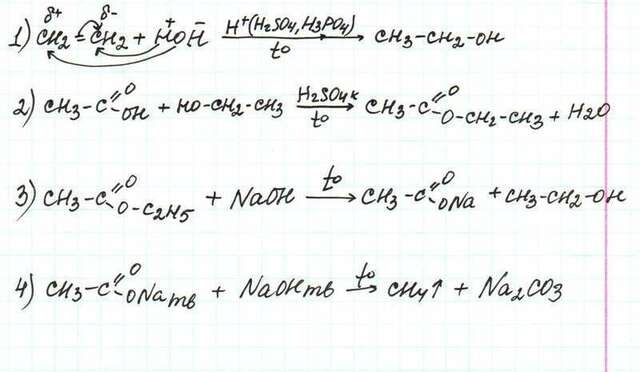 δ+ δ-
1) CH2=CH2 + H⁺OH⁻ H⁺(H2SO4, H3PO4) t° → CH3-CH2-OH
2) CH3-C=O-OH + HO-CH2-CH3 H2SO4 к t° → CH3-C=O-O-CH2-CH3 + H2O
3) CH3-C=O-O-C2H5 + NaOH t° → CH3-C=O-ONa + CH3-CH2-OH
4) CH3-C=O-ONa тв + NaOH тв t° → CH4↑ + Na2CO3